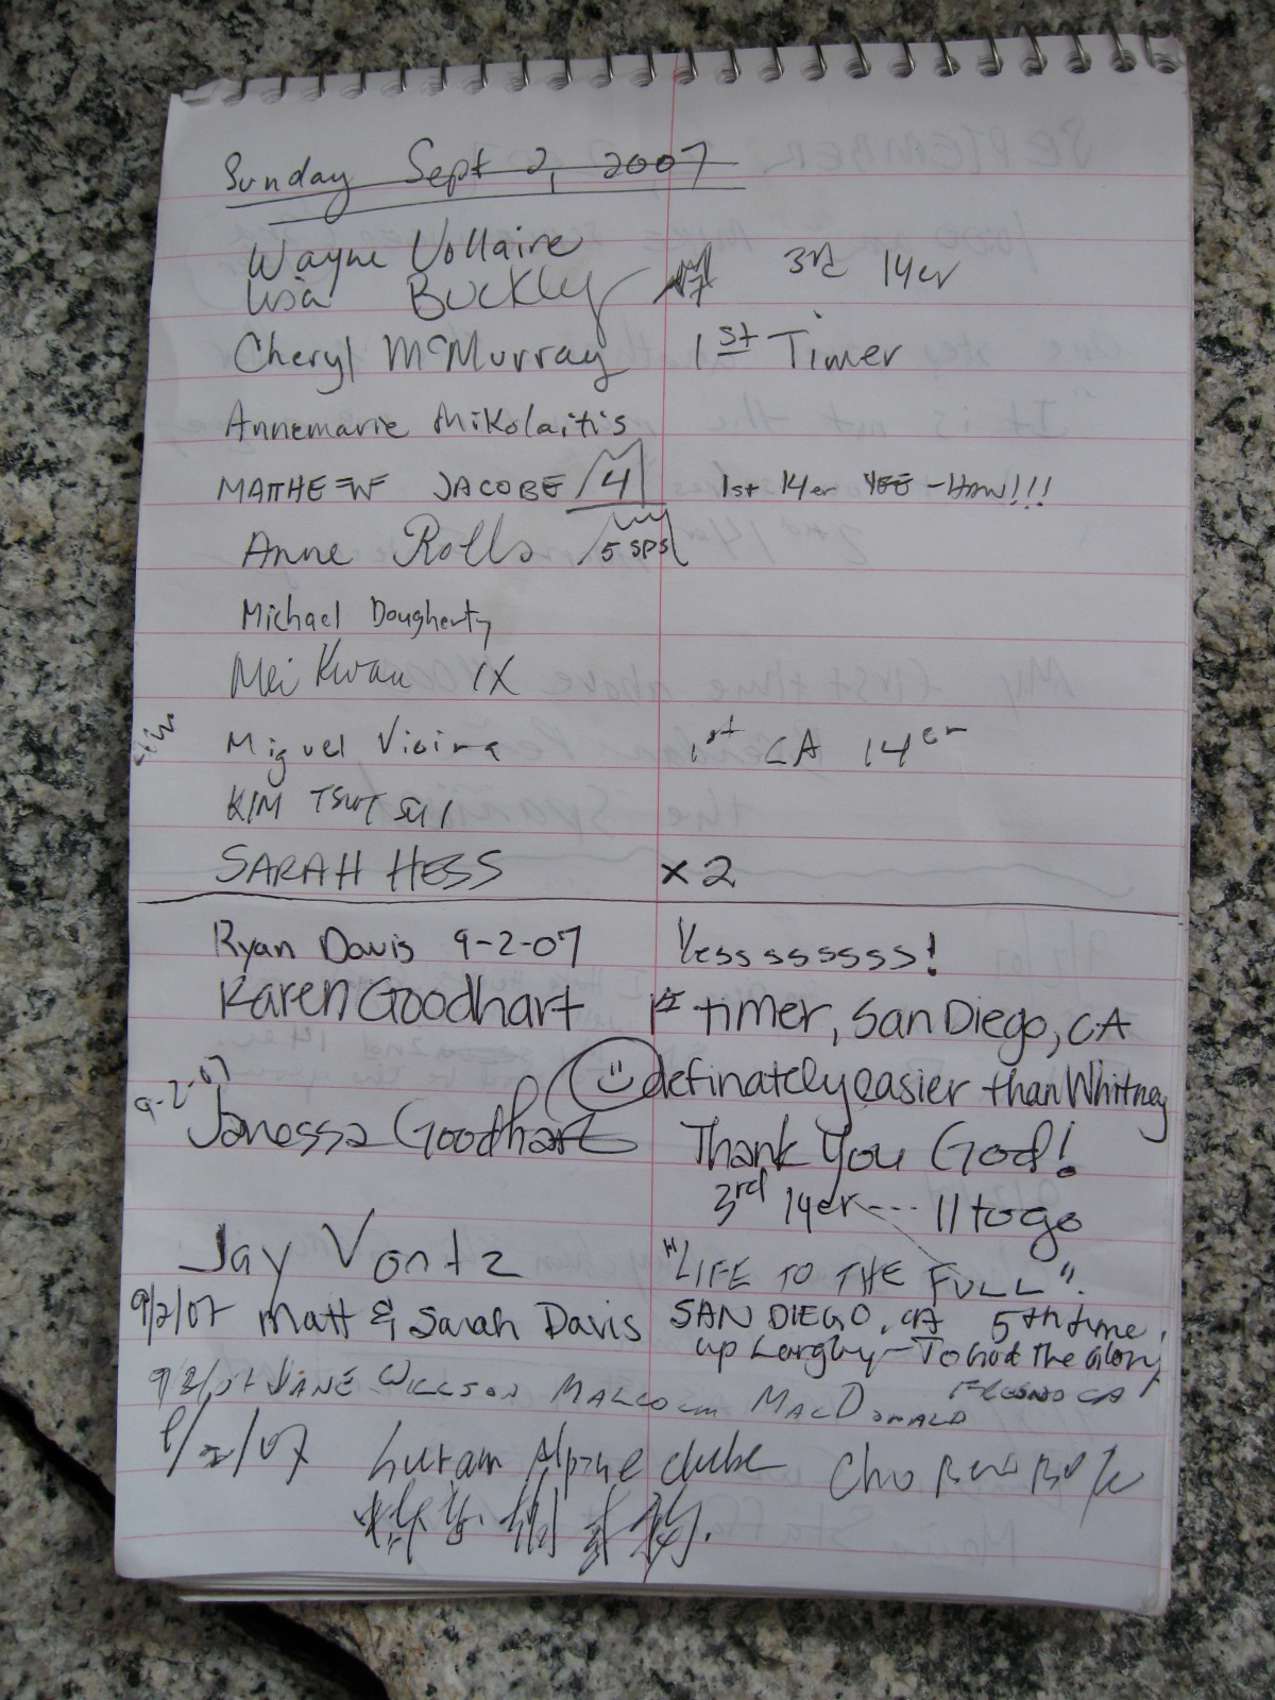 Sunday Sept 2, 2007
Wayne Vollaire
Lisa Buckly 3rd 14er
Cheryl McMurray 1st Timer
Annemarie Mikolaitis
MATTHEW JACOBE 4 1st 14er YEE-HAW!!!
Anne Rolls 5 SPS
Michael Dougherty
Mei Kwan 1X
Miguel Vieira 1st CA 14er
KIM TSUTSUI
SARAH HESS x2
Ryan Davis 9-2-07 Yesssssssss!
Karen Goodhart 1st timer, San Diego, CA
definately easier than Whitney
9-2-07 Janessa Goodhart Thank You God!
3rd 14er --- 11 to go
Jay Vontz "LIFE TO THE FULL".
9/2/07 Matt & Sarah Davis SAN DIEGO, CA 5th time
up Langley - To God the Glory
JANE WILLSON MALCOLM MACDONALD FRESNO CA
/2/07 Alpine